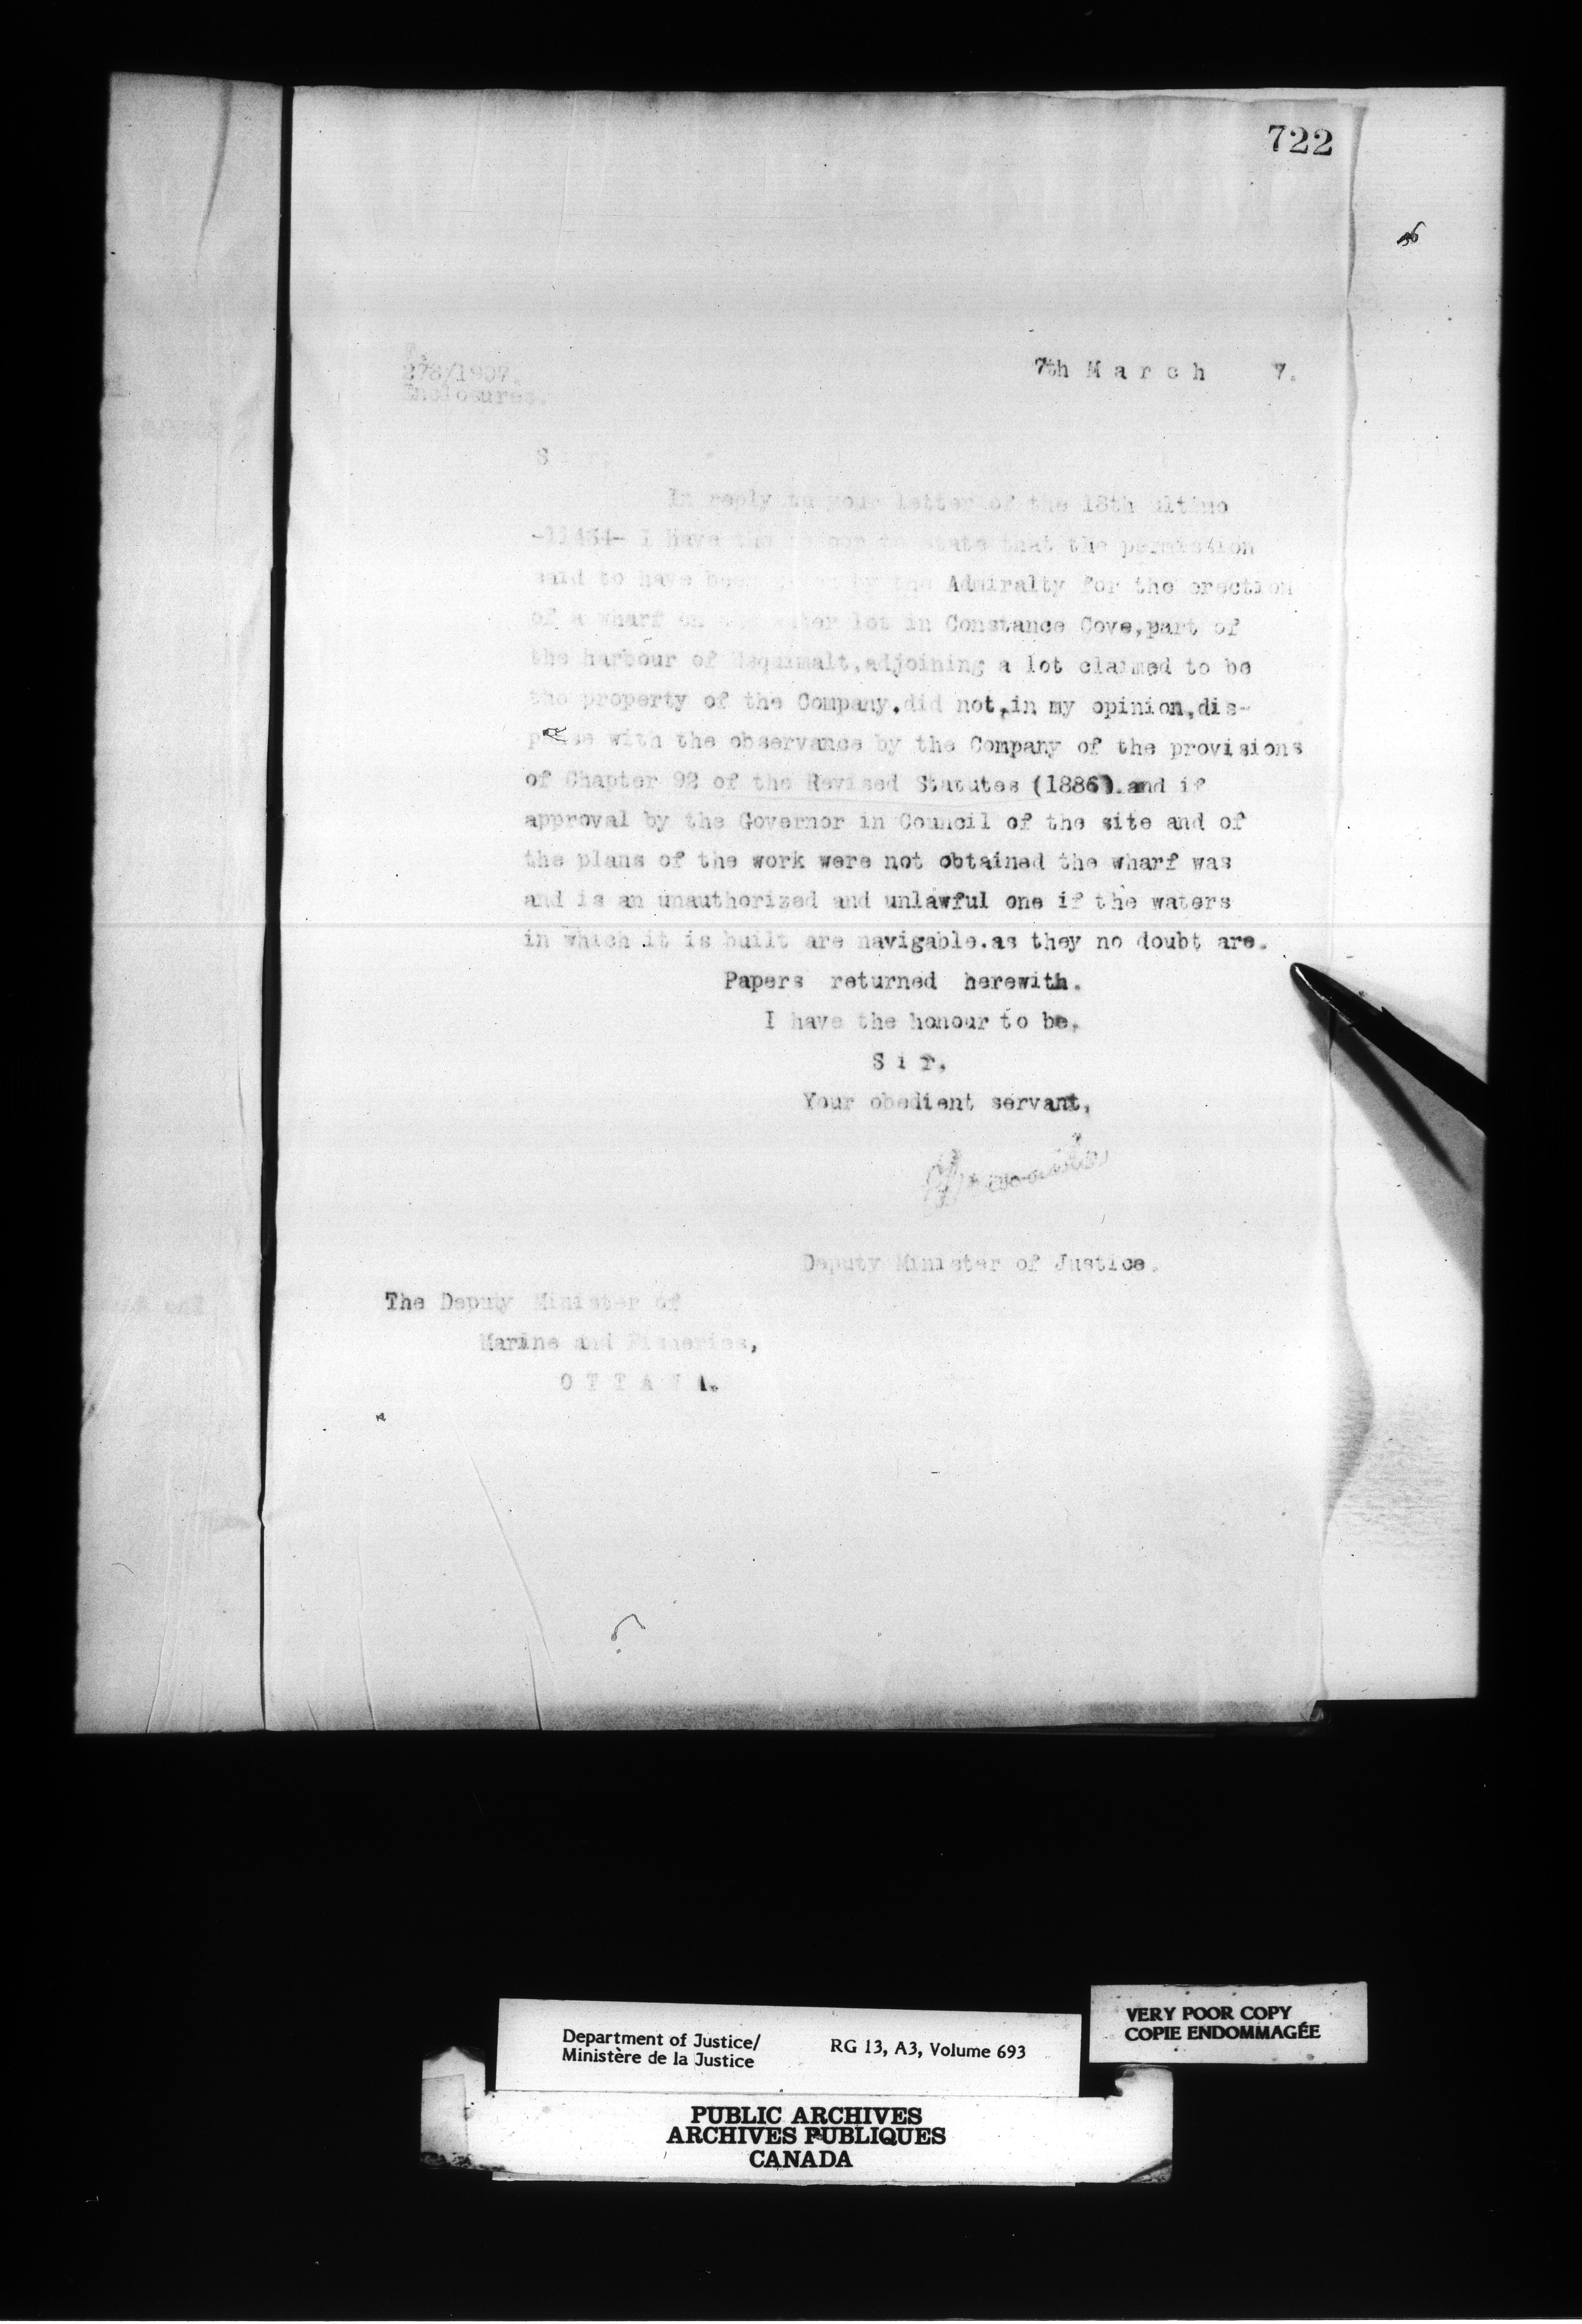 722
278/1907.
Enclosures.
7th March 7.
Sir,
In reply to your letter of the 18th ultimo
-11434- I have the honor to state that the permission
said to have been by the Admiralty for the erection
of a wharf on water lot in Constance Cove,part of
the harbour of Esquimalt,adjoining a lot claimed to be
the property of the Company.did not,in my opinion,dis-
pense with the observance by the Company of the provisions
of Chapter 92 of the Revised Statutes (1886).and if
approval by the Governor in Council of the site and of
the plans of the work were not obtained the wharf was
and is an unauthorized and unlawful one if the waters
in which it is built are navigable.as they no doubt are.
Papers returned herewith.
I have the honour to be,
Sir,
Your obedient servant,
Deputy Minister of Justice.
The Deputy Minister of
Marine and Fisheries,
OTTAWA.
Department of Justice/
Ministère de la Justice
RG 13, A3, Volume 693
VERY POOR COPY
COPIE ENDOMMAGÉE
PUBLIC ARCHIVES
ARCHIVES PUBLIQUES
CANADA